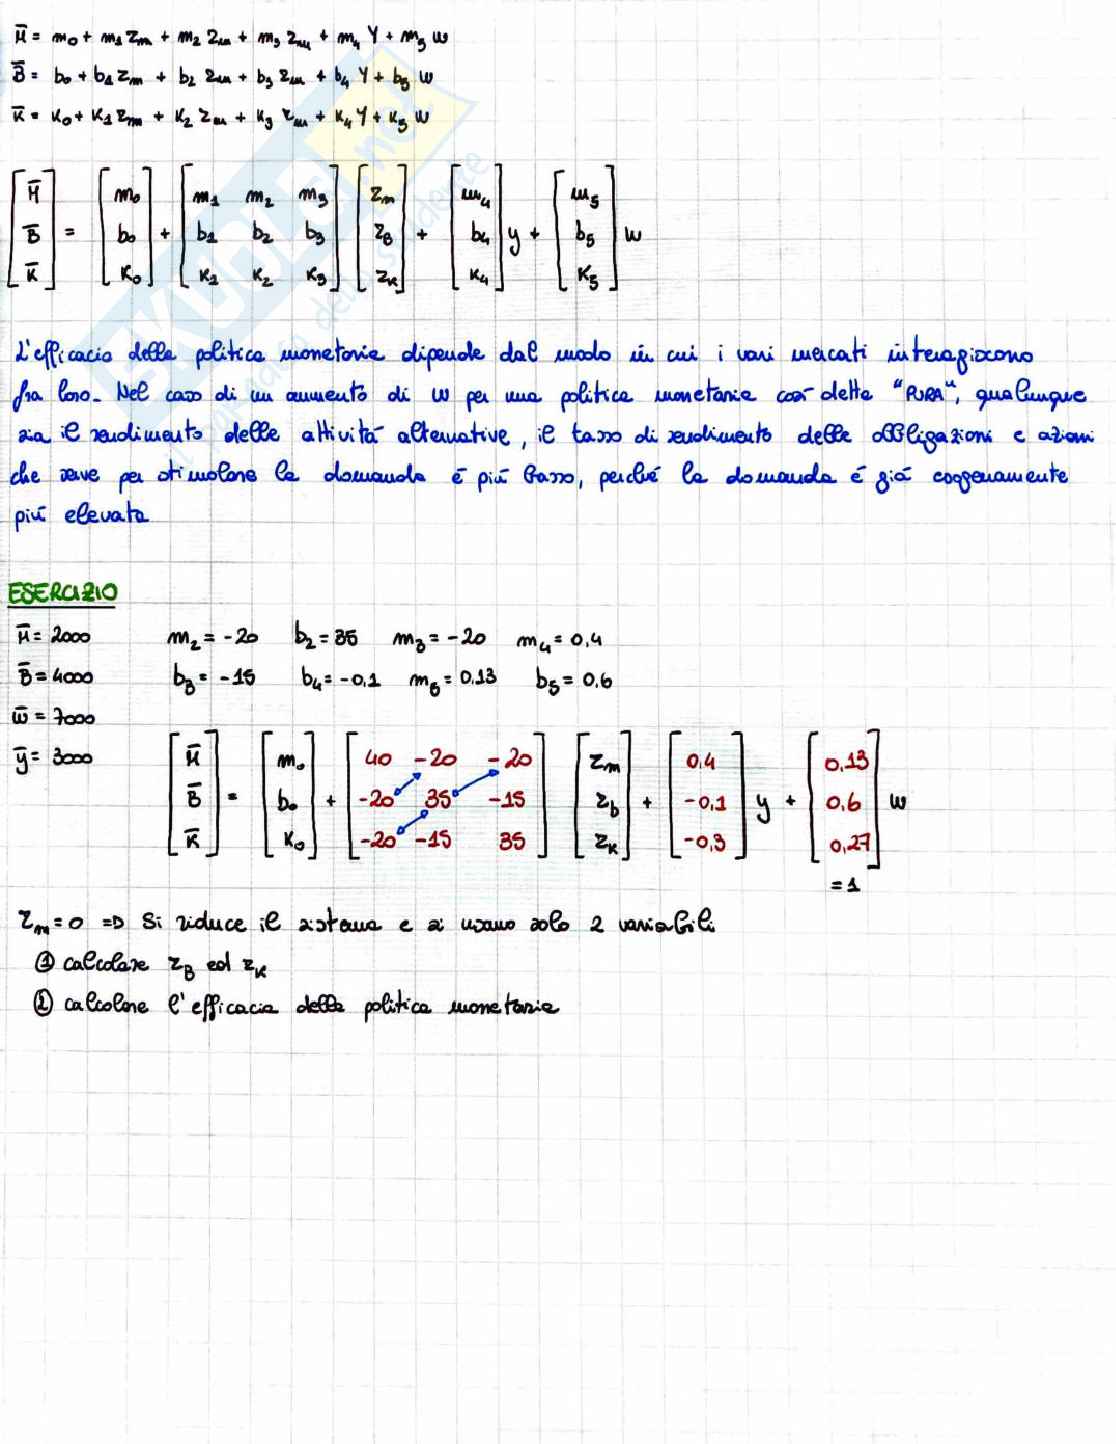 M̄ = m₀ + m₁ zₘ + m₂ zₘ + m₃ zₘ + m₄ Y + m₅ w
B̄ = b₀ + b₁ zₘ + b₂ zₘ + b₃ zₘ + b₄ Y + b₅ w
K̄ = K₀ + K₁ zₘ + K₂ zₘ + K₃ zₘ + K₄ Y + K₅ w
[M̄] [m₀] [m₁ m₂ m₃] [zₘ] [m₄] [m₅]
[B̄] = [b₀] + [b₁ b₂ b₃] [z_B] + [b₄] y + [b₅] w
[K̄] [K₀] [K₁ K₂ K₃] [z_K] [K₄] [K₅]
L'efficacia della politica monetaria dipende dal modo in cui i vari mercati interagiscono
fra loro. Nel caso di un aumento di w per una politica monetaria così detta "PURA", qualunque
sia il rendimento delle attività alternative, il tasso di rendimento delle obbligazioni e azioni
che serve per stimolare la domanda é più basso, perché la domanda é già
più elevata
ESERCIZIO
M̄ = 2000 m₂ = -20 b₂ = 35 m₃ = -20 m₄ = 0,4
B̄ = 4000 b₃ = -15 b₄ = -0,1 m₅ = 0,13 b₅ = 0,6
w̄ = 7000
ȳ = 3000 [M̄] [m₀] [40 -20 -20] [zₘ] [0,4] [0,13]
[B̄] = [b₀] + [-20 35 -15] [z_b] + [-0,1] y + [0,6] w
[K̄] [K₀] [-20 -15 35] [z_K] [-0,3] [0,27]
= 1
zₘ = 0 => Si riduce il sistema e si usano solo 2 variabili
① calcolare z_B ed z_K
② calcolare l'efficacia della politica monetaria